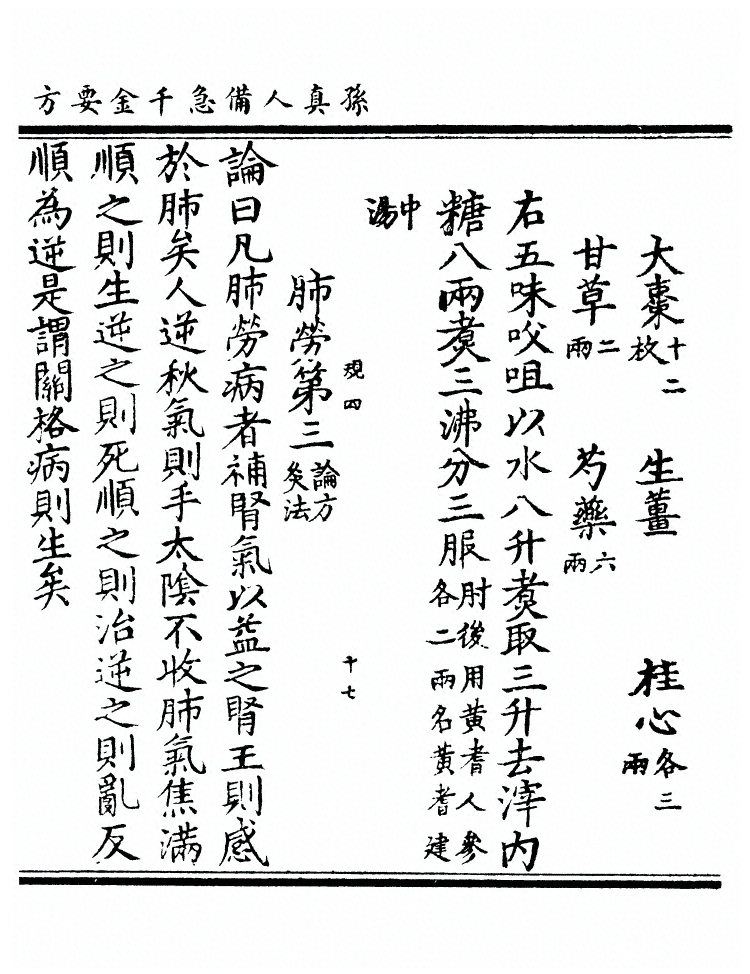 孫真人備急千金要方
大棗十二枚 生薑 桂心各三兩
甘草二兩 芍藥六兩
右五味㕮咀以水八升煮取三升去滓內
糖八兩煮三沸分三服肘後用黃耆人參各二兩名黃耆建
中湯
現四 十七
肺勞第三論方灸法
論曰凡肺勞病者補腎氣以益之腎王則感
於肺矣人逆秋氣則手太陰不收肺氣焦滿
順之則生逆之則死順之則治逆之則亂反
順為逆是謂關格病則生矣